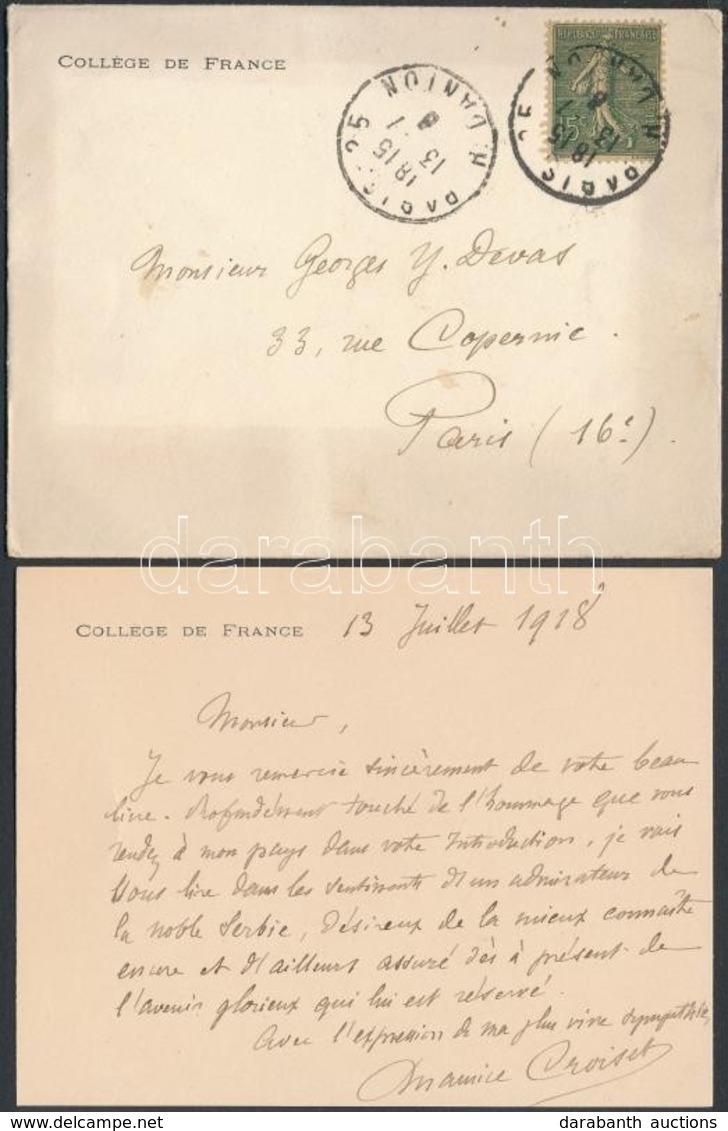 COLLÈGE DE FRANCE
RÉPUBLIQUE FRANÇAISE
15c
PARIS 25
R. DANTON
18 15
13 - 7
PARIS 25
R. DANTON
18 15
13 - 7
Monsieur Georges Y. Devas
33, rue Copernic.
Paris (16e).
darabanth
COLLÈGE DE FRANCE 13 Juillet 1918
Monsieur,
Je vous remercie sincèrement de votre beau
livre. Profondément touché de l'hommage que vous
rendez à mon pays dans votre Introduction, je vais
vous lire dans les sentiments d'un admirateur de
la noble Serbie, désireux de la mieux connaître
encore et d'ailleurs assuré dès à présent de
l'avenir glorieux qui lui est réservé.
Avec l'expression de ma plus vive sympathie,
Maurice Croiset
darabanth auctions